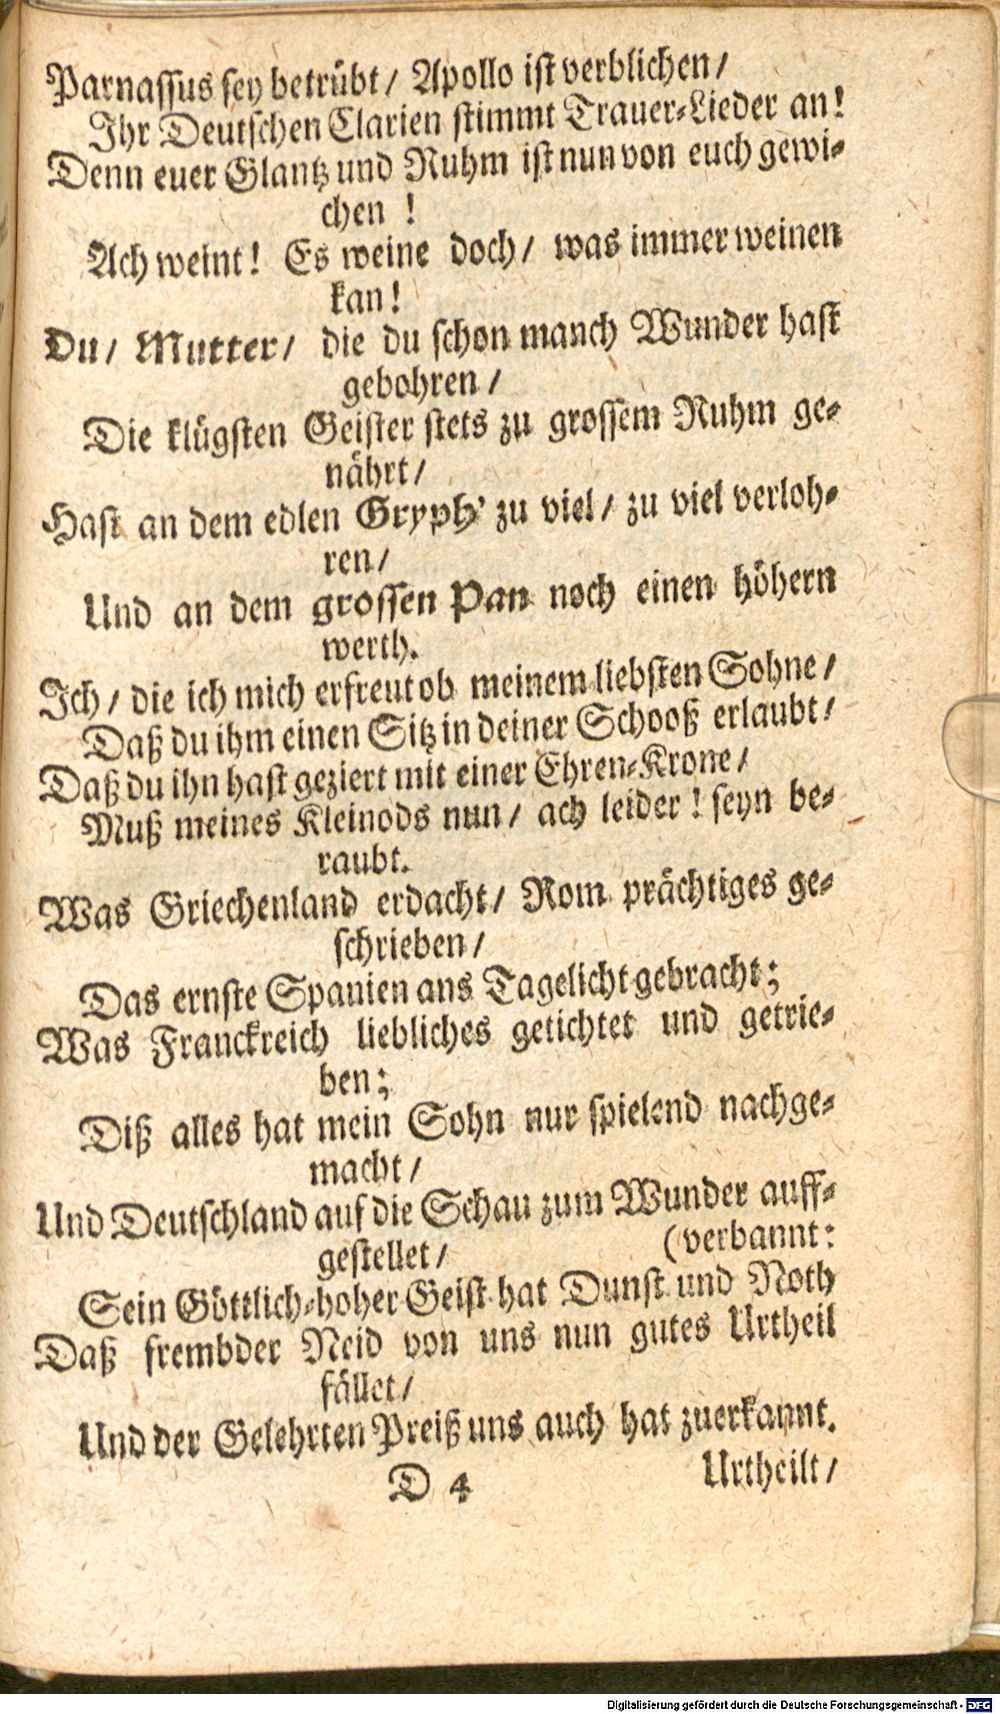 Parnassus sey betrübt/ Apollo ist verblichen/
Ihr Deutschen Clarien stimmt Trauer-Lieder an!
Denn euer Glantz und Ruhm ist nun von euch gewi-
chen !
Ach weint! Es weine doch/ was immer weinen
kan!
Du/ Mutter/ die du schon manch Wunder hast
gebohren/
Die klügsten Geister stets zu grossem Ruhm ge-
nährt/
Hast an dem edlen Gryph' zu viel/ zu viel verloh-
ren/
Und an dem grossen Pan noch einen höhern
werth.
Ich/ die ich mich erfreut ob meinem liebsten Sohne/
Daß du ihm einen Sitz in deiner Schooß erlaubt/
Daß du ihn hast geziert mit einer Ehren-Krone/
Muß meines Kleinods nun/ ach leider! seyn be-
raubt.
Was Griechenland erdacht/ Rom prächtiges ge-
schrieben/
Das ernste Spanien ans Tagelicht gebracht;
Was Franckreich liebliches getichtet und getrie-
ben;
Diß alles hat mein Sohn nur spielend nachge-
macht/
Und Deutschland auf die Schau zum Wunder auff-
gestellet/ (verbannt:
Sein Göttlich-hoher Geist hat Dunst und Noth
Daß frembder Neid von uns nun gutes Urtheil
fället/
Und der Gelehrten Preiß uns auch hat zuerkannt.
D 4 Urtheilt/
Digitalisierung gefördert durch die Deutsche Forschungsgemeinschaft - DFG